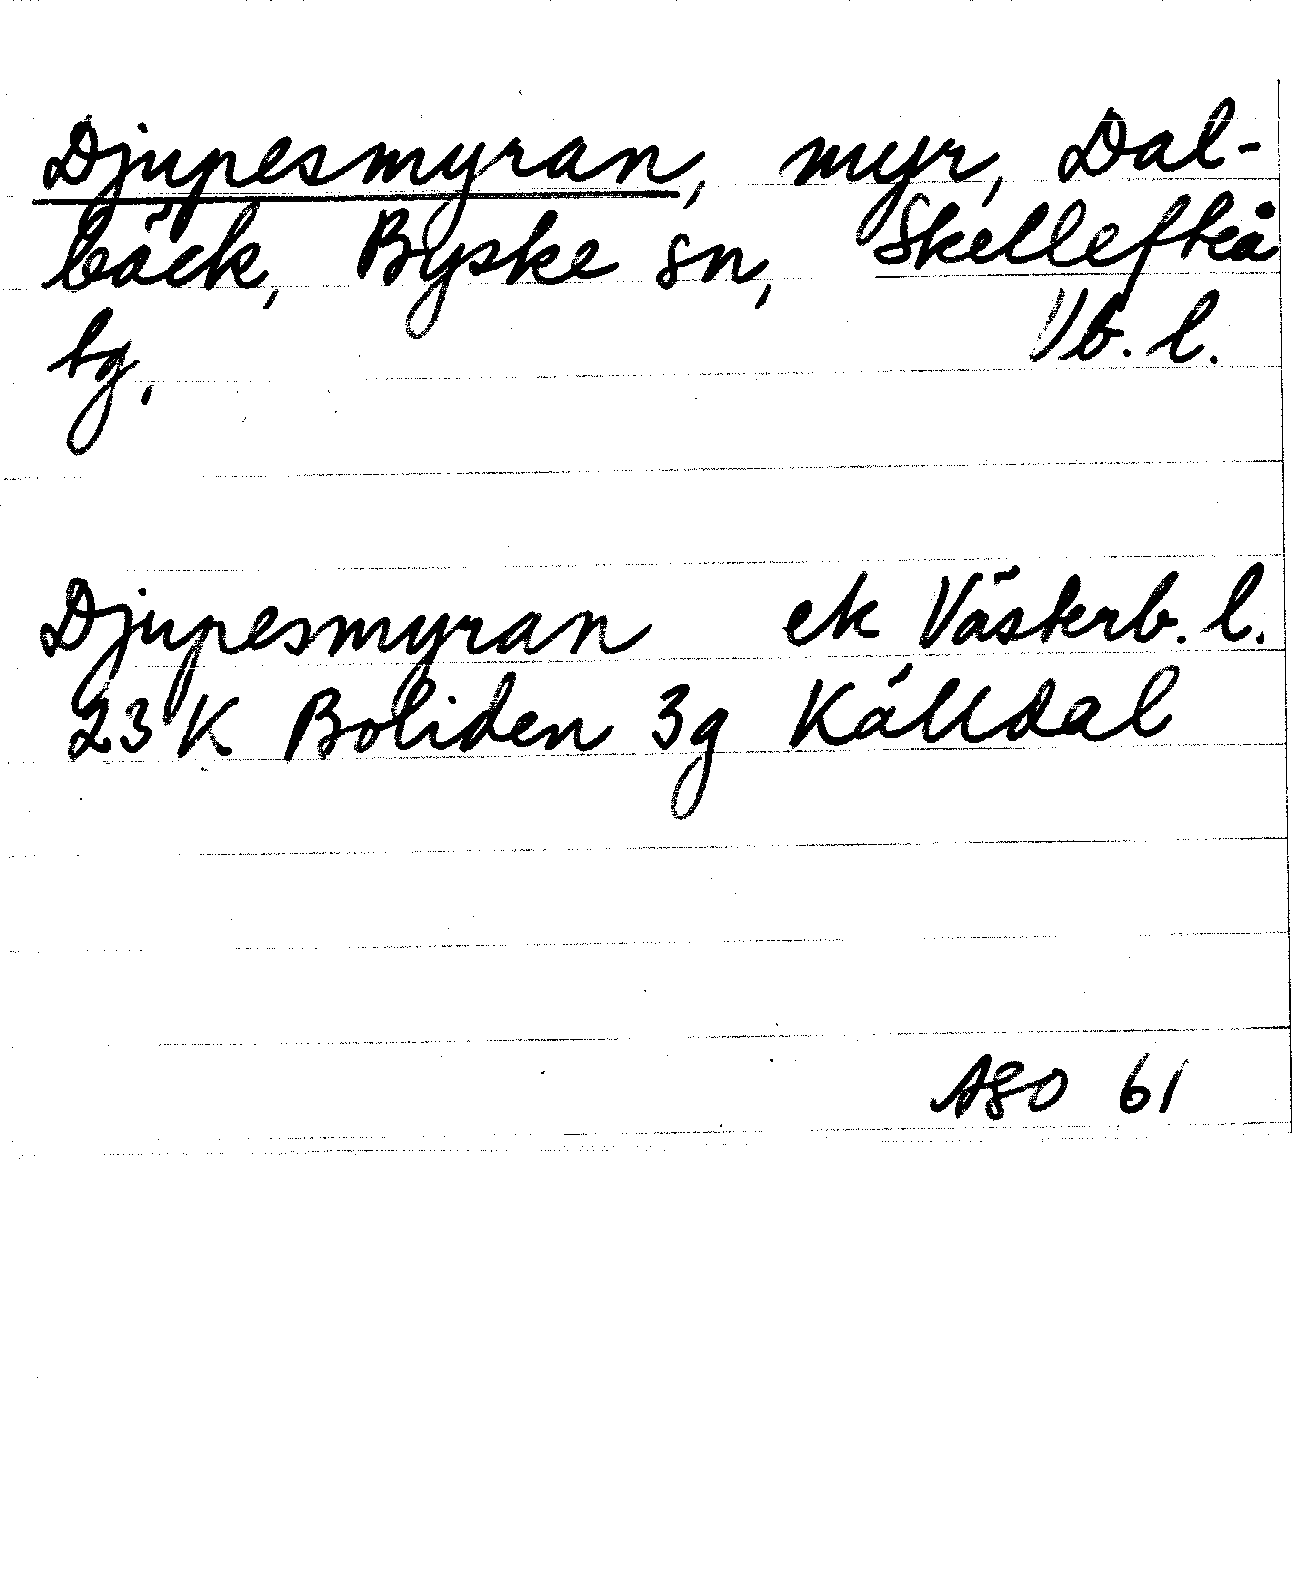 Djupesmyran, myr, Dal-
bäck, Byske sn, Skellefteå
tg. Vb. l.
Djupesmyran ek Västerb. l.
23 K Boliden 3g Källdal
ASO 61